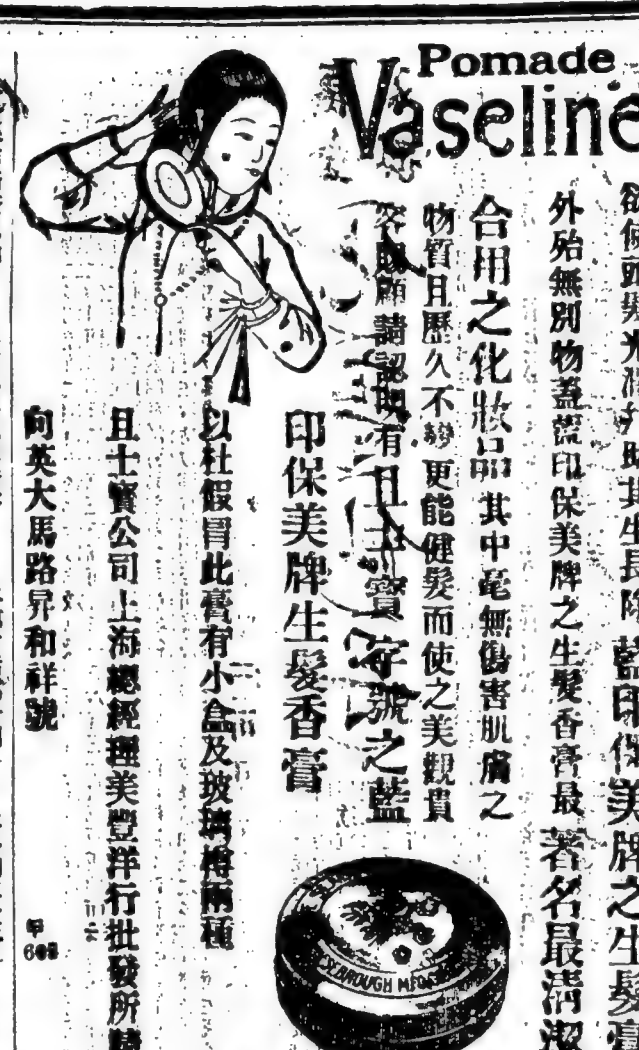 Pomade
Vaseline
欲使頭髮光潤并助其生長除藍印保美牌之生髮膏
外殆無別物蓋藍印保美牌之生髮香膏最著名最清潔
合用之化妝品其中毫無傷害肌膚之
物質且歷久不變更能健髮而使之美觀貴
客賜顧請認明有且士寶字號之藍
印保美牌生髮香膏
以杜假冒此膏有小盒及玻璃樽兩種
且士寶公司上海總經理美豐洋行批發所請
向英大馬路昇和祥號
甲
CHESEBROUGH MFG